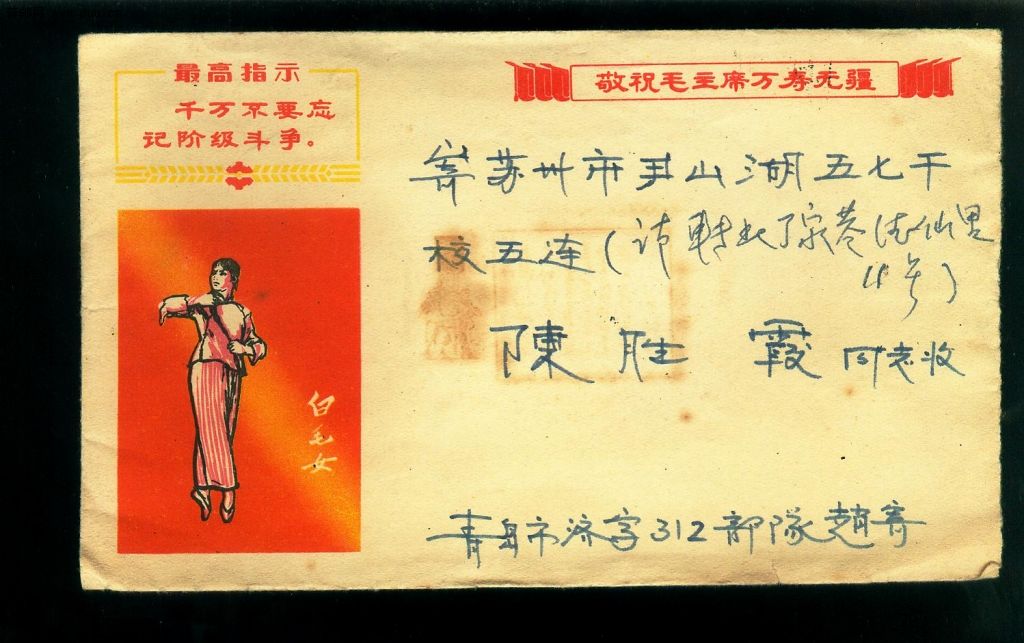 最高指示
千万不要忘
记阶级斗争。
敬祝毛主席万寿无疆
寄苏州市尹山湖五七干
校五连(请转北 巷 仙里
11号)
陳胜霞同志收
白毛女
青島市济字312部隊趙寄